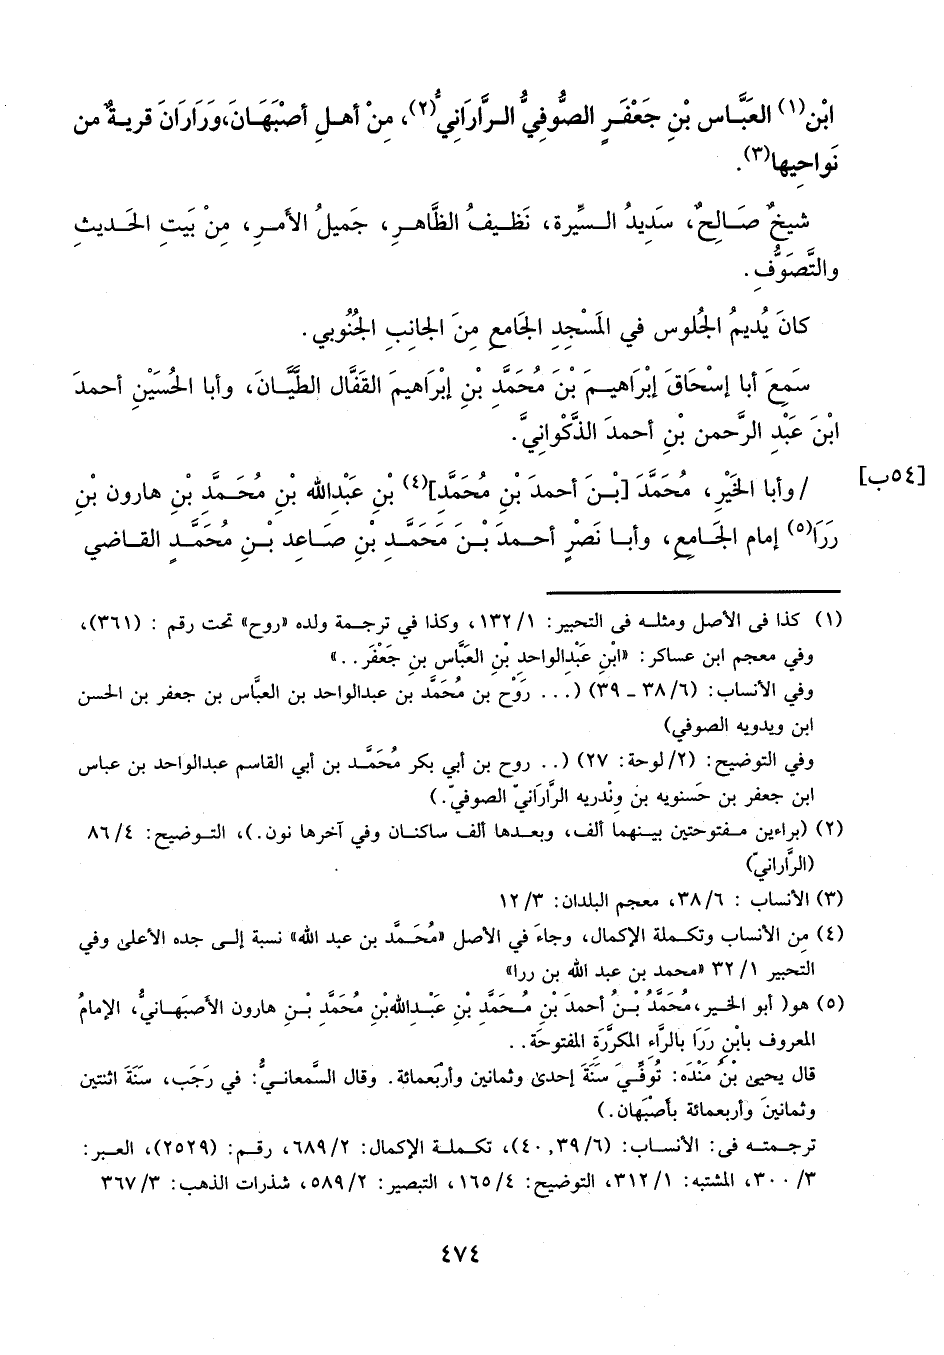 ابْن(١) العَبَّاس بْنِ جَعْفَرٍ الصُّوفيُّ الـرَّارَانيُّ(٢)، مِنْ أهـلِ أصْبَهَـانَ، وَرَارَانَ قريـةٌ من
نَواحِيها(٣).
شيخٌ صَـالِحٌ، سَدِيدُ الـسِّيرة، نَظيفُ الظَّاهـرِ، جَميلُ الأمـرِ، مِنْ بَيتِ الحَـديثِ
والتَّصَوُّفِ.
كانَ يُديمُ الجُلوس في المَسْجدِ الجَامع مِنَ الجانبِ الجُنُوبي.
سَمِعَ أبا إسْحَاقَ إبْرَاهيـمَ بْنَ مُحَمَّدِ بْنِ إبْرَاهيمَ القَفَّال الطَّيَّانَ، وأبا الحُسَيْنِ أحمدَ
ابْنَ عَبْدِ الرَّحمنِ بْنِ أحمدَ الذَّكْوانيَّ.
[٥٤ب] / وأبا الخَيْرِ، مُحَمَّدَ [بْـنَ أحمدَ بْنِ مُحَمَّدِ](٤) بْنِ عَبْدالله بْنِ مُحَـمَّدِ بْنِ هارون بْنِ
رَرَا(٥) إمام الجَـامعِ، وأبـا نَصْرٍ أحـمـدَ بْـنَ مُحَمَّـدِ بْنِ صَـاعدِ بْـنِ مُحَمَّـدٍ القـاضي
(١) كذا فى الأصل ومثلـه فى التحبير: ١/ ١٣٢، وكذا في ترجمة ولده «روح» تحت رقم : (٣٦١)،
وفي معجم ابن عساكر: «ابْنِ عَبْدالواحدِ بْنِ العَبَّاسِ بنِ جَعْفَرٍ . .»
وفي الأنساب: (٦/ ٣٨ - ٣٩) (. . . رَوْح بن مُحَمَّد بن عبدالواحد بن العبَّاس بن جعفر بن الحسن
ابن ويدويه الصوفي)
وفي التوضيح: (٢/ لوحة: ٢٧) (. . روح بن أبي بكر مُحَمَّـد بن أبي القاسم عبدالواحد بن عباس
ابن جعفر بن حَسنويه بن ونْدريه الرَّارَانيّ الصوفيّ.)
(٢) (براءين مـفتوحتين بيـنهما ألف، وبعـدها ألف ساكنان وفي آخرها نون.)، التـوضيح: ٤/ ٨٦
(الرَّارانيّ)
(٣) الأنساب : ٦/ ٣٨، معجم البلدان: ٣/ ١٢
(٤) مِن الأنساب وتكـملة الإكمال، وجاءَ في الأصل «مُحَمَّد بن عبد الله» نسبة إلـى جده الأعلىٰ وفي
التحبير ١/ ٣٢ «محمد بن عبد الله بن ررا»
(٥) هو( أبو الخـير، مُحَمَّدُ بْـنُ أحمدَ بْنِ مُـحَمَّدِ بْنِ عَبْـداللهِ بْنِ مُحَمَّدِ بْـنِ هارون الأصْبَهـانيُّ، الإمامُ
المعروف بابْنِ رَرَا بالرَّاء المكرَّرَة المفتوحَة . .
قال يحيىٰ بْنُ مَنْدَه: تُوفِّـيَ سَنَةَ إحدىٰ وثمانين وأرْبعمائة. وقال السَّمعانـيُّ: في رَجَب، سَنَةَ اثنتين
وثمانينَ وأربعمائة بأصْبَهان.)
ترجـمتـه فى: الأنساب: (٦/ ٣٩, ٤٠)، تكـملـة الإكمال: ٢/ ٦٨٩، رقـم: (٢٥٢٩)، العبـر:
٣/ ٣٠٠، المشتبه: ١/ ٣١٢، التوضيح: ٤/ ١٦٥، التبصير: ٢/ ٥٨٩، شذرات الذهب: ٣/ ٣٦٧
٤٧٤